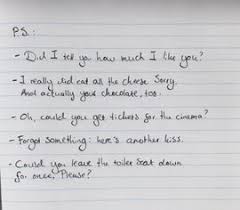 P.S.:
- Did I tell you how much I like you?
- I really did eat all the cheese. Sorry.
And actually your chocolate, too.
- Oh, could you get tickets for the cinema?
- Forgot something: here's another kiss.
- Could you leave the toilet seat down
for once, Please?